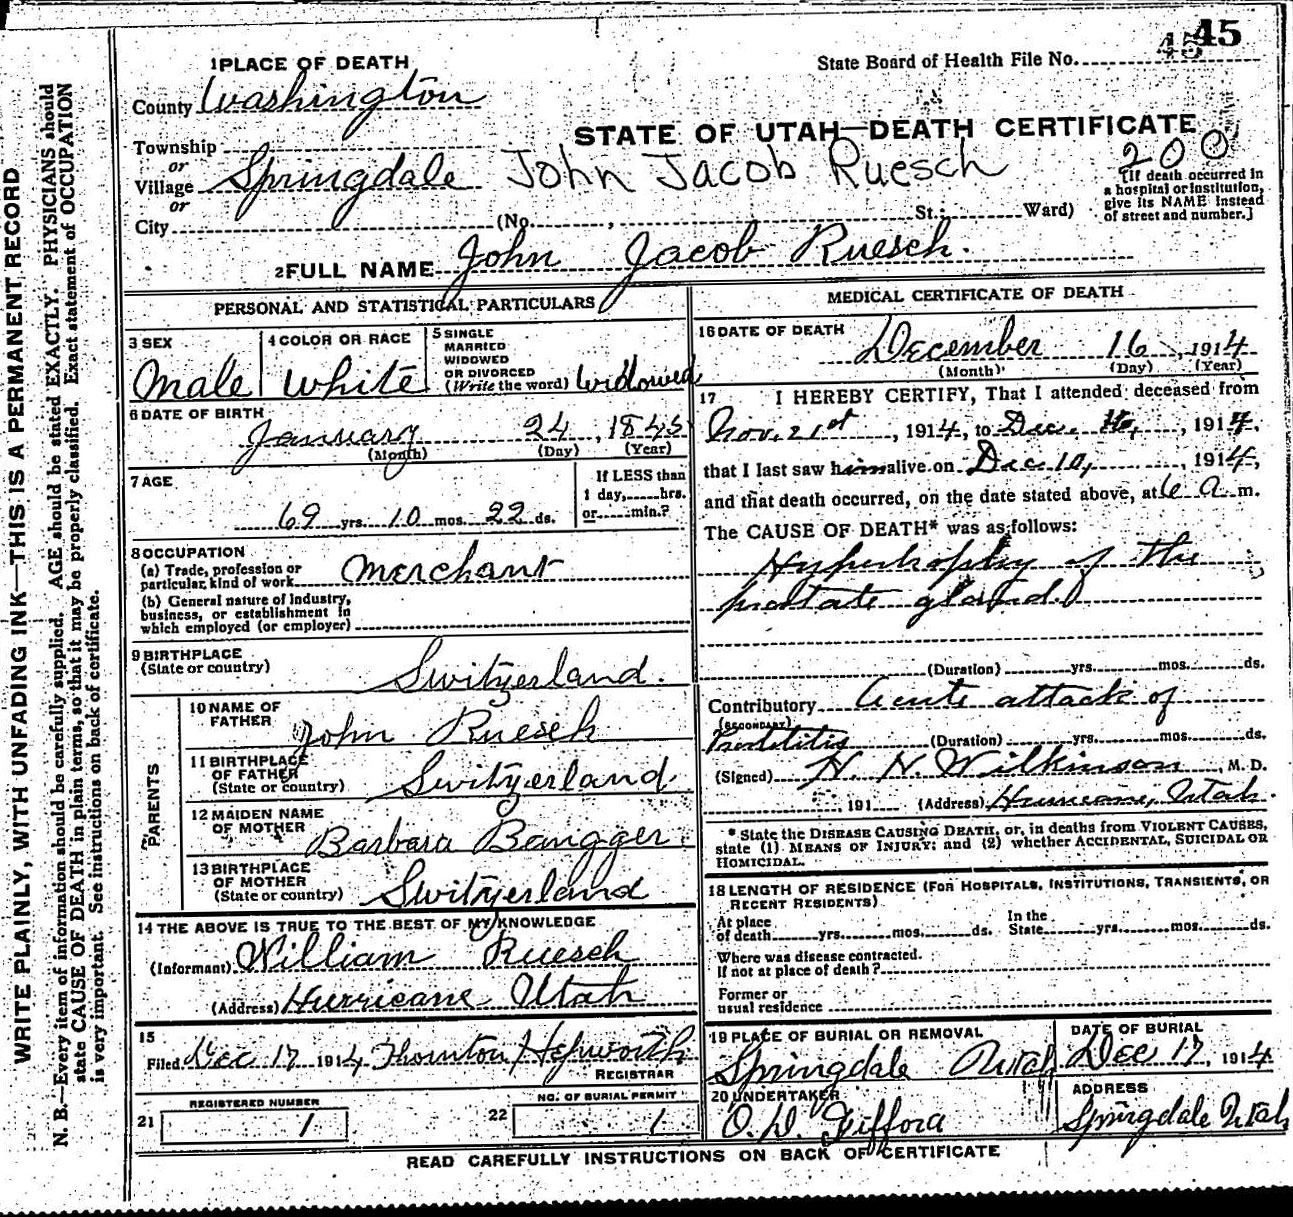 45 45
State Board of Health File No.
1 PLACE OF DEATH
County Washington
STATE OF UTAH—DEATH CERTIFICATE
Township
or
Village Springdale John Jacob Ruesch 200
or
City (No. , St.; Ward)
[If death occurred in
a hospital or institution,
give its NAME instead
of street and number.]
2 FULL NAME John Jacob Ruesch.
PERSONAL AND STATISTICAL PARTICULARS
3 SEX
Male
4 COLOR OR RACE
White
5 SINGLE
MARRIED
WIDOWED
OR DIVORCED
(Write the word) Widowed
6 DATE OF BIRTH
January 24, 1845
(Month) (Day) (Year)
7 AGE
69 yrs. 10 mos. 22 ds.
If LESS than
1 day,.....hrs.
or.....min.?
8 OCCUPATION
(a) Trade, profession or
particular kind of work Merchant
(b) General nature of industry,
business, or establishment in
which employed (or employer)
9 BIRTHPLACE
(State or country) Switzerland.
PARENTS
10 NAME OF
FATHER John Ruesch
11 BIRTHPLACE
OF FATHER
(State or country) Switzerland.
12 MAIDEN NAME
OF MOTHER Barbara Bangger.
13 BIRTHPLACE
OF MOTHER
(State or country) Switzerland
14 THE ABOVE IS TRUE TO THE BEST OF MY KNOWLEDGE
(Informant) William Ruesch
(Address) Hurricane Utah
15
Filed Dec 17 1914 Thornton Hepworth
REGISTRAR
21 REGISTERED NUMBER
1
22 NO. OF BURIAL PERMIT
1
MEDICAL CERTIFICATE OF DEATH
16 DATE OF DEATH
December 16, 1914
(Month) (Day) (Year)
17 I HEREBY CERTIFY, That I attended deceased from
Nov. 21st, 1914, to Dec. , 1914,
that I last saw him alive on Dec 10, , 1914,
and that death occurred, on the date stated above, at 6 a m.
The CAUSE OF DEATH* was as follows:
Hypertrophy of the
prostate gland.
(Duration) yrs. mos. ds.
Contributory Acute attack of
(SECONDARY)
Prostitis (Duration) yrs. mos. ds.
(Signed) H. H. Wilkinson, M. D.
191 (Address) Hurricane, Utah.
* State the DISEASE CAUSING DEATH, or, in deaths from VIOLENT CAUSES,
state (1) MEANS OF INJURY; and (2) whether ACCIDENTAL, SUICIDAL OR
HOMICIDAL.
18 LENGTH OF RESIDENCE (FOR HOSPITALS, INSTITUTIONS, TRANSIENTS, OR
RECENT RESIDENTS)
At place
of death yrs. mos. ds.
In the
State yrs. mos. ds.
Where was disease contracted.
If not at place of death?
Former or
usual residence
19 PLACE OF BURIAL OR REMOVAL
Springdale Utah
DATE OF BURIAL
Dec 17, 1914
20 UNDERTAKER
O. D. Gifford
ADDRESS
Springdale Utah
READ CAREFULLY INSTRUCTIONS ON BACK OF CERTIFICATE
WRITE PLAINLY, WITH UNFADING INK—THIS IS A PERMANENT RECORD
N. B.—Every item of information should be carefully supplied. AGE should be stated EXACTLY. PHYSICIANS should
state CAUSE OF DEATH in plain terms, so that it may be properly classified. Exact statement of OCCUPATION
is very important. See instructions on back of certificate.